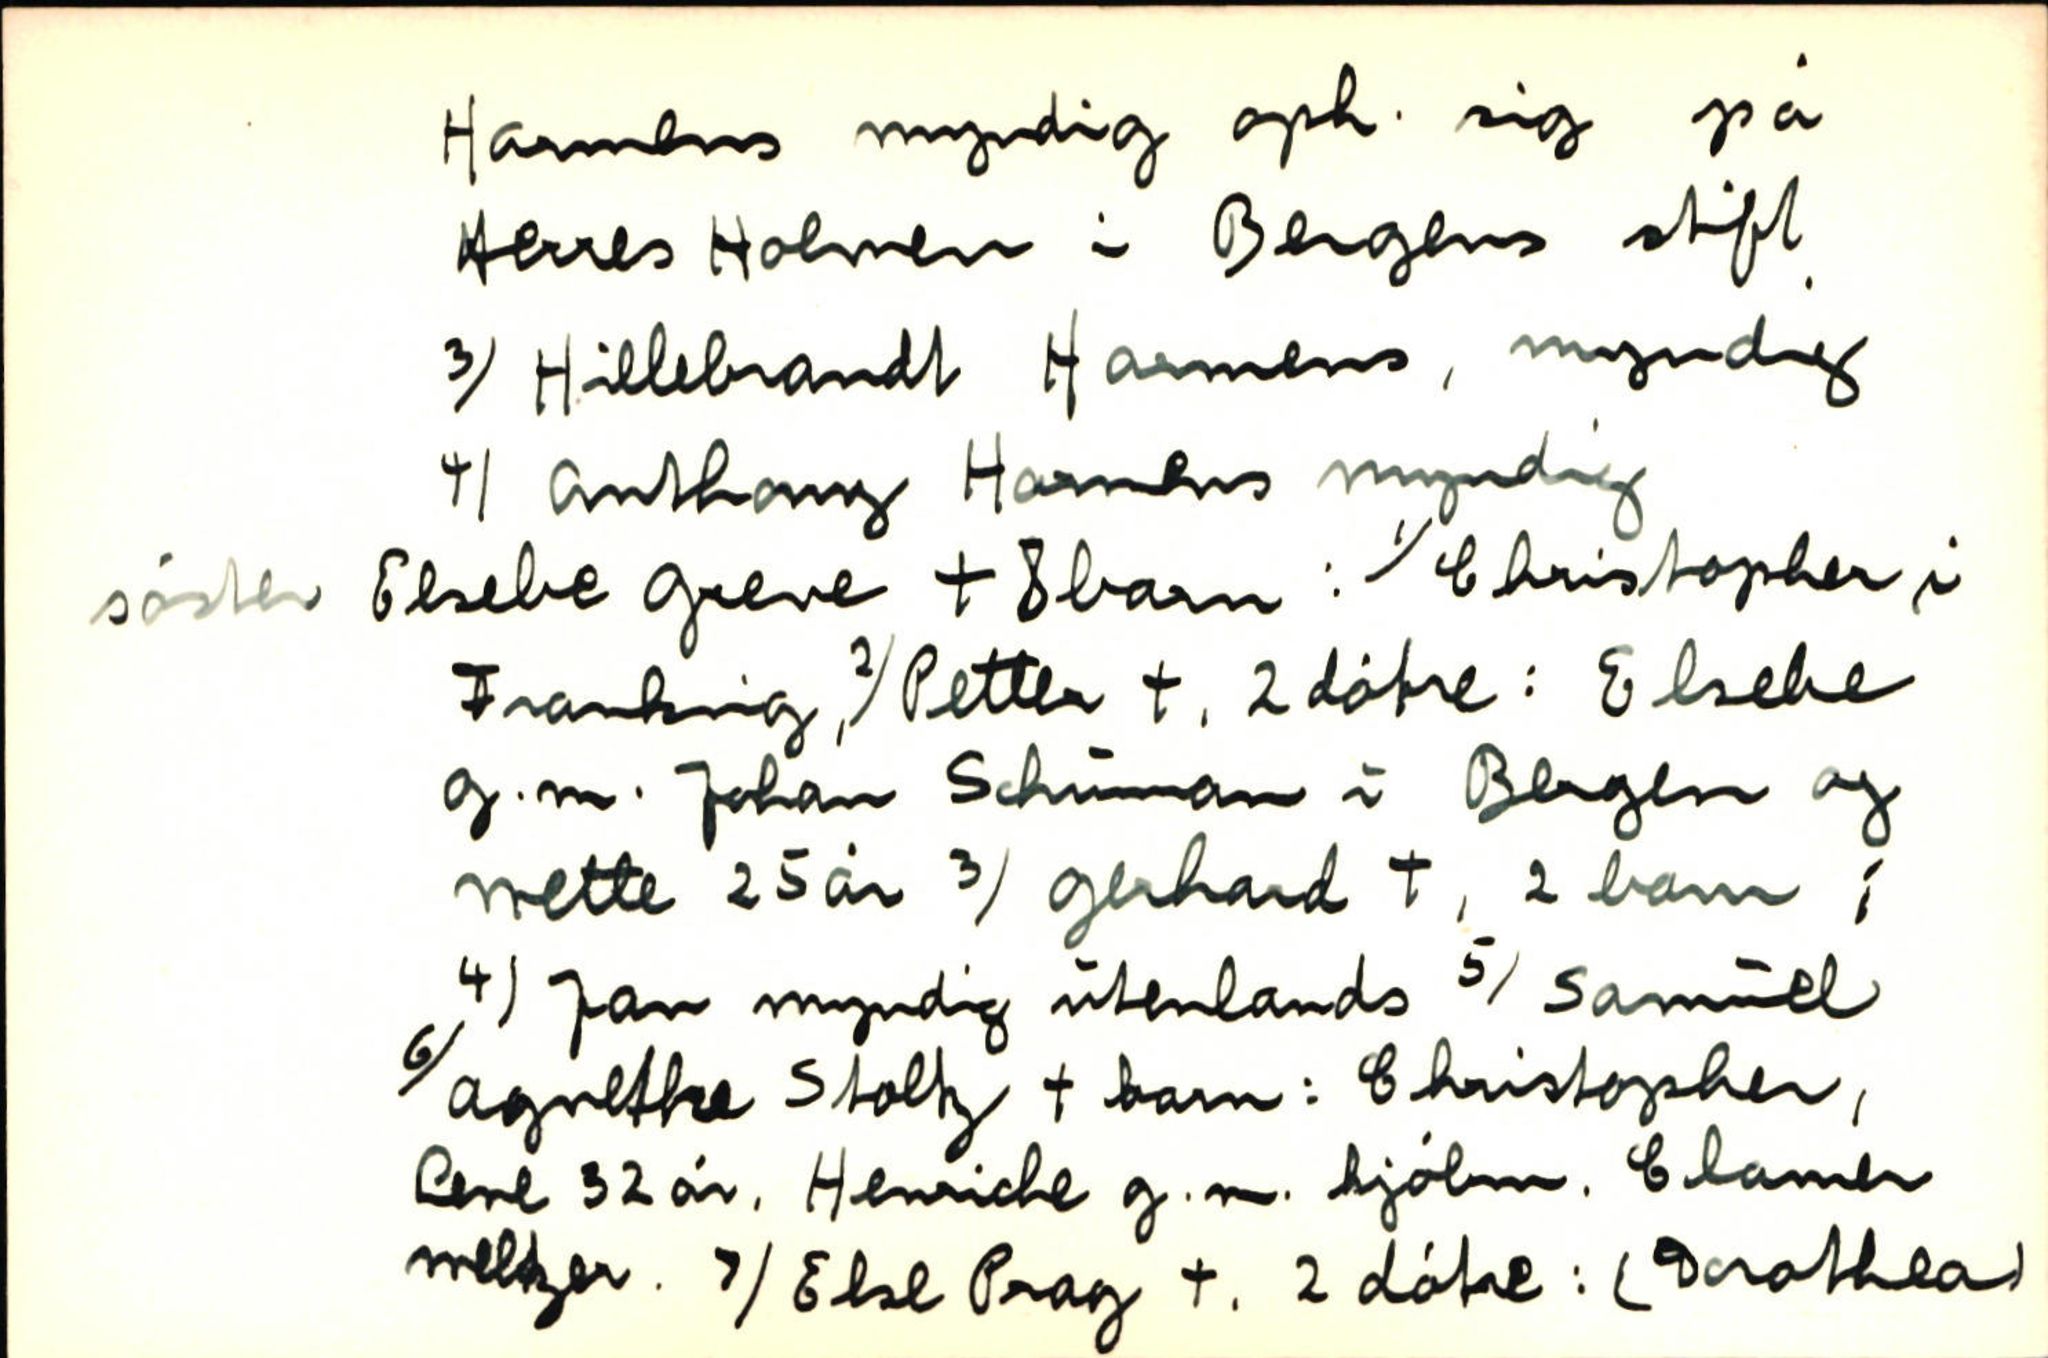 Harmens myndig oph. sig på
Herres Holmen i Bergens stift.
3/ Hillebrandt Harmens, myndig
4/ Anthony Harmens myndig
söster Elsebe Greve + 8 barn : 1/ Christopher, i
Frankrig, 2/ Petter +, 2 dótre : Elsebe
g.m. Johan Schūman i Bergen og
mette 25 år 3/ Gerhard +, 2 barn ;
4) Jan myndig ūtenlands 5/ Samūel
6/ Agnethe Stoltz + barn : Christopher,
Lene 32 år, Henriche g.m. kjóbm. Clamer
meltzer. 7/ Else Prag +. 2 dótre : (Dorothea)